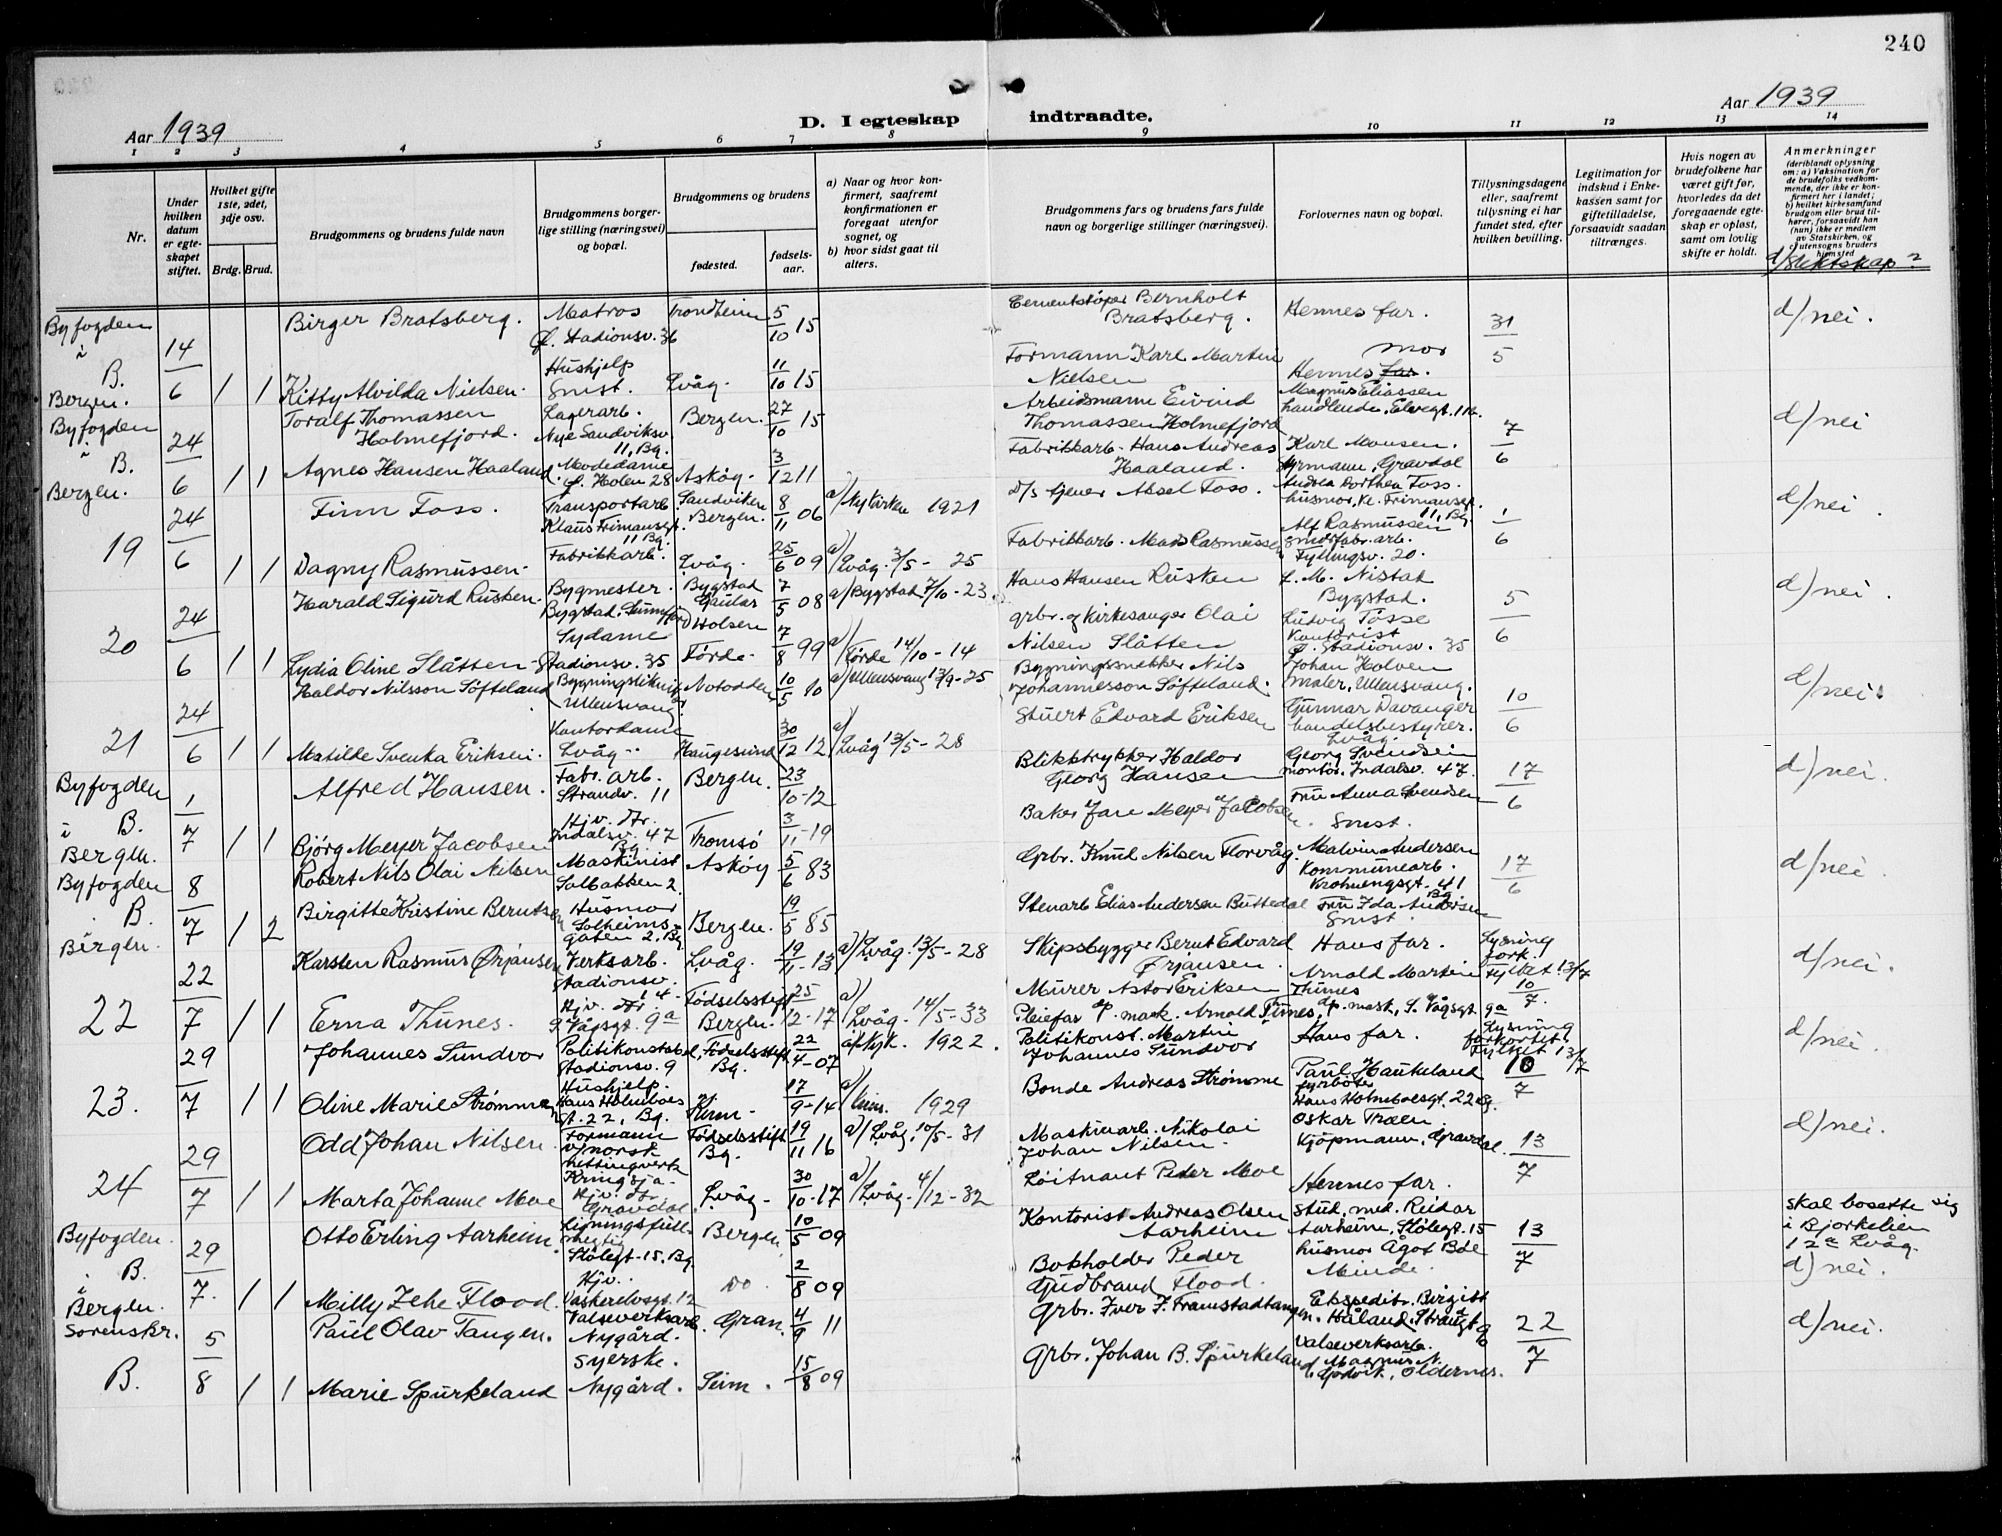 240
Aar 1939
D. I egteskap indtraadte.
Aar 1939
1 2 3 4 5 6 7 8 9 10 11 12 13 14
Nr.
Under hvilken datum er egteskapet stiftet.
Hvilket gifte 1ste, 2det, 3dje osv.
Brdg. Brud.
Brudgommens og brudens fulde navn
Brudgommens borgerlige stilling (næringsvei) og bopæl.
Brudgommens og brudens
fødested.
fødselsaar.
a) Naar og hvor konfirmert, saafremt konfirmationen er foregaat utenfor sognet, og
b) hvor sidst gaat til alters.
Brudgommens fars og brudens fars fulde navn og borgerlige stillinger (næringsvei).
Forlovernes navn og bopæl.
Tillysningsdagene eller, saafremt tillysning ei har fundet sted, efter hvilken bevilling.
Legitimation for indskud i Enkekassen samt for giftetilladelse, forsaavidt saadan tiltrænges.
Hvis nogen av brudefolkene har været gift før, hvorledes da det foregaaende egteskap er opløst, samt om lovlig skifte er holdt.
Anmerkninger
(deriblandt oplysning om: a) Vaksination for de brudefolks vedkommende, der ikke er konfirmert her i landet; b) hvilket kirkesamfund brudgom eller brud tilhører, forsaavidt han (hun) ikke er medlem av Statskirken, og c) utensogns bruders hjemsted
d/ Slektskap?
Byfogden i B. Bergen. 14/6 1 1
Birger Bratsberg. Matros Gl. Stadionsv. 36 Trondheim 5/10 15
Cementstøper Bernholt Bratsberg. Hennes far. 31/5 d/ nei.
Kitty Alvilda Nielsen. Hushjelp Smst. Lvåg. 11/10 15
Formann Karl Martin Nielsen Hennes mor
Byfogden i B. Bergen. 24/6 1 1
Toralf Thomassen Holmefjord. Lagerarb. Nye Sandviksv. 11, Bg. Bergen. 27/10 15
Arbeidsmann Eivind Thomassen Holmefjord Magnus Eliassen handlende, Elvegt. 7/6 d/ nei
Agnes Hansen Haaland Modedame Gl. Holen 28 Askøy. 3/12 11
Fabrikkarb. Hans Andreas Haaland. Karl Monsen. styrmann, Gravdal
19 24/6 1 1
Finn Foss. Transportarb. Klaus Frimansgt. 11 Bg. Sandviken Bergen. 8/11 06 a/ Nykirken 1921
D/s tjener Aksel Foss. Andrea Dorthea Foss. husmor, Kl. Frimansgt. 11, Bg. 1/6 d/ nei.
Dagny Rasmussen. Fabrikkarb. Lvåg. 25/6 09 a/ Lvåg. 3/5 - 25
Fabrikkarb. Mads Rasmussen Alf Rasmussen smørfabr. arb. Fyllingsv. 20.
20 24/6 1 1
Harald Sigurd Rusken. Bygmester. Bygstad, Sunnfjord Bygstad Gaular 7/5 08 a/ Bygstad 7/10 - 23.
Hans Hansen Rusken L. M. Nistad Bygstad. 5/6 d/ nei.
Lydia Oline Slåtten Sydame Stadionsv. 35 Holsen Førde. 7/8 99 a/ Førde 14/10 - 14
grbr. og Kirkesanger Olai Nilsen Slåtten Ludvig Tøsse Kontorist Gl. Stadionsv. 35
21 24/6 1 1
Haldor Nilsson Søfteland Bygningstekniker Ullensvang Notodden 10/5 10 a/ Ullensvang 13/9 - 25
Bygningssnekker Nils Johannesson Søfteland. Johan Holven maler, Ullensvang. 10/6 d/ nei.
Matilde Svenka Eriksen. Kontordame Lvåg. Haugesund 30/12 12 a/ Lvåg 13/5 - 28
Stuert Edvard Eriksen Gunnar Davanger handelsbestyrer. Lvåg.
Byfogden i B. Bergen. 1/7 1 1
Alfred Hansen. Fabr. arb. Strandv. 11 Bergen. 23/10-12
Blikktrykker Haldor Georg Hansen Georg Svendsen montør, Indalsv. 47. 17/6 d/ nei.
Bjørg Meyer Jacobsen Hjv. dtr. Indalsv. 47 Bg. Tromsø 3/11-19
Baker Jare Meyer Jacobsen. Fru Anna Svendsen Smst.
Byfogden i B. Bergen. 8/7 1 2
Robert Nils Olai Nilsen Maskinist Solbakken 2. Askøy 5/6 83
Grbr. Knut Nilsen Florvåg. Malvin Andersen Kommunearb. Krohnengsgt. 41 Bg. 17/6 d/ nei.
Birgitte Kristine Berntsen Husmor Solheimsgaten 2, Bg Bergen. 19/5 85
Stenarb Elias Andersen Buttedal Fru Ida Andersen Smst.
22 22/7 1 1
Karsten Rasmus Ørjansen Verksarb. Stadionsv. 14. Lvåg. 19/11-13 a/ Lvåg. 13/5 - 28
Skipsbygger Bernt Edvard Ørjansen. Hans far. Lysning fork. Fylket 13/7 10/7. d/ nei.
Erna Thunes. Hjv. dtr. S. Vågsgt. 9a Fødselsstift. Bergen. 25/12-17 a/ Lvåg. 14/5 - 33
Murer Astor Eriksen Pleiefar dp. mask. Arnold Thunes, Arnold Martin Thunes dp. mask, S. Vågsgt. 9a
23. 29/7 1 1
Johannes Sundvor Politikonstabel, Stadionsv. 9 Fødselsstift. Bg. 22/4-07 1922.
Politikonst. Martin Johannes Sundvor Hans far. Lysning forkortet Fylket 13/7 10/7 d/ nei.
Oline Marie Strømmen Hushjelp. Hans Holmboes gt. 22, Bg. Kinn. 17/9-14 a/ Kinn. 1929
Bonde Andreas Strømme Paul Haukeland fyrbøter Hans Holmboesgt. 22 Bg.
24 29/7 1 1
Odd Johan Nilsen. Formann v/ norsk nettingverk Kringsja. Fødselsstift Bg. 19/11 16 a/ Lvåg. 10/5 - 31
Maskinarb. Nikolai Johan Nilsen. Oskar Træen Kjøpmann, Gravdal. 13/7 d/ nei.
Marta Johanne Moe Hjv. dtr. Gravdal Lvåg. 30/10-17 a/ Lvåg. 4/12 - 32
Løitnant Peder Moe Hennes far.
Byfogden i B. Bergen. 29/7. 1 1
Otto Erling Aarheim. Ligningsfullmegtig Stølegt. 15. Bg. Bergen. 10/5 09
Kontorist Andreas Olsen Aarheim stud. med. Reidar Aarheim, Stølegt. 15 13/7 skal bosette sig i Bjorkelien 12a Lvåg. d) nei.
Milly Zehe Flood. Hjv. Vaskerelvsgt. 12 Do. 2/8 09
Bokholder Peder Gudbrand Flood. husmor Ågot Bøe Minde.
Sorenskr. B. 5/8 1 1
Paul Olav Tangen. Valseverksarb. Nygård. Gran. 4/9 11
Grbr. Iver J. Framstadtangen. Ekspeditr. Birgitt Håland, Strandgt 9 22/7 d/ nei.
Marie Spurkeland Syerske. Nygård. Seim. 15/8 09
Grbr. Johan B. Spurkeland Valseverksarb. Magnus N. Gjøvik, Oldernes.